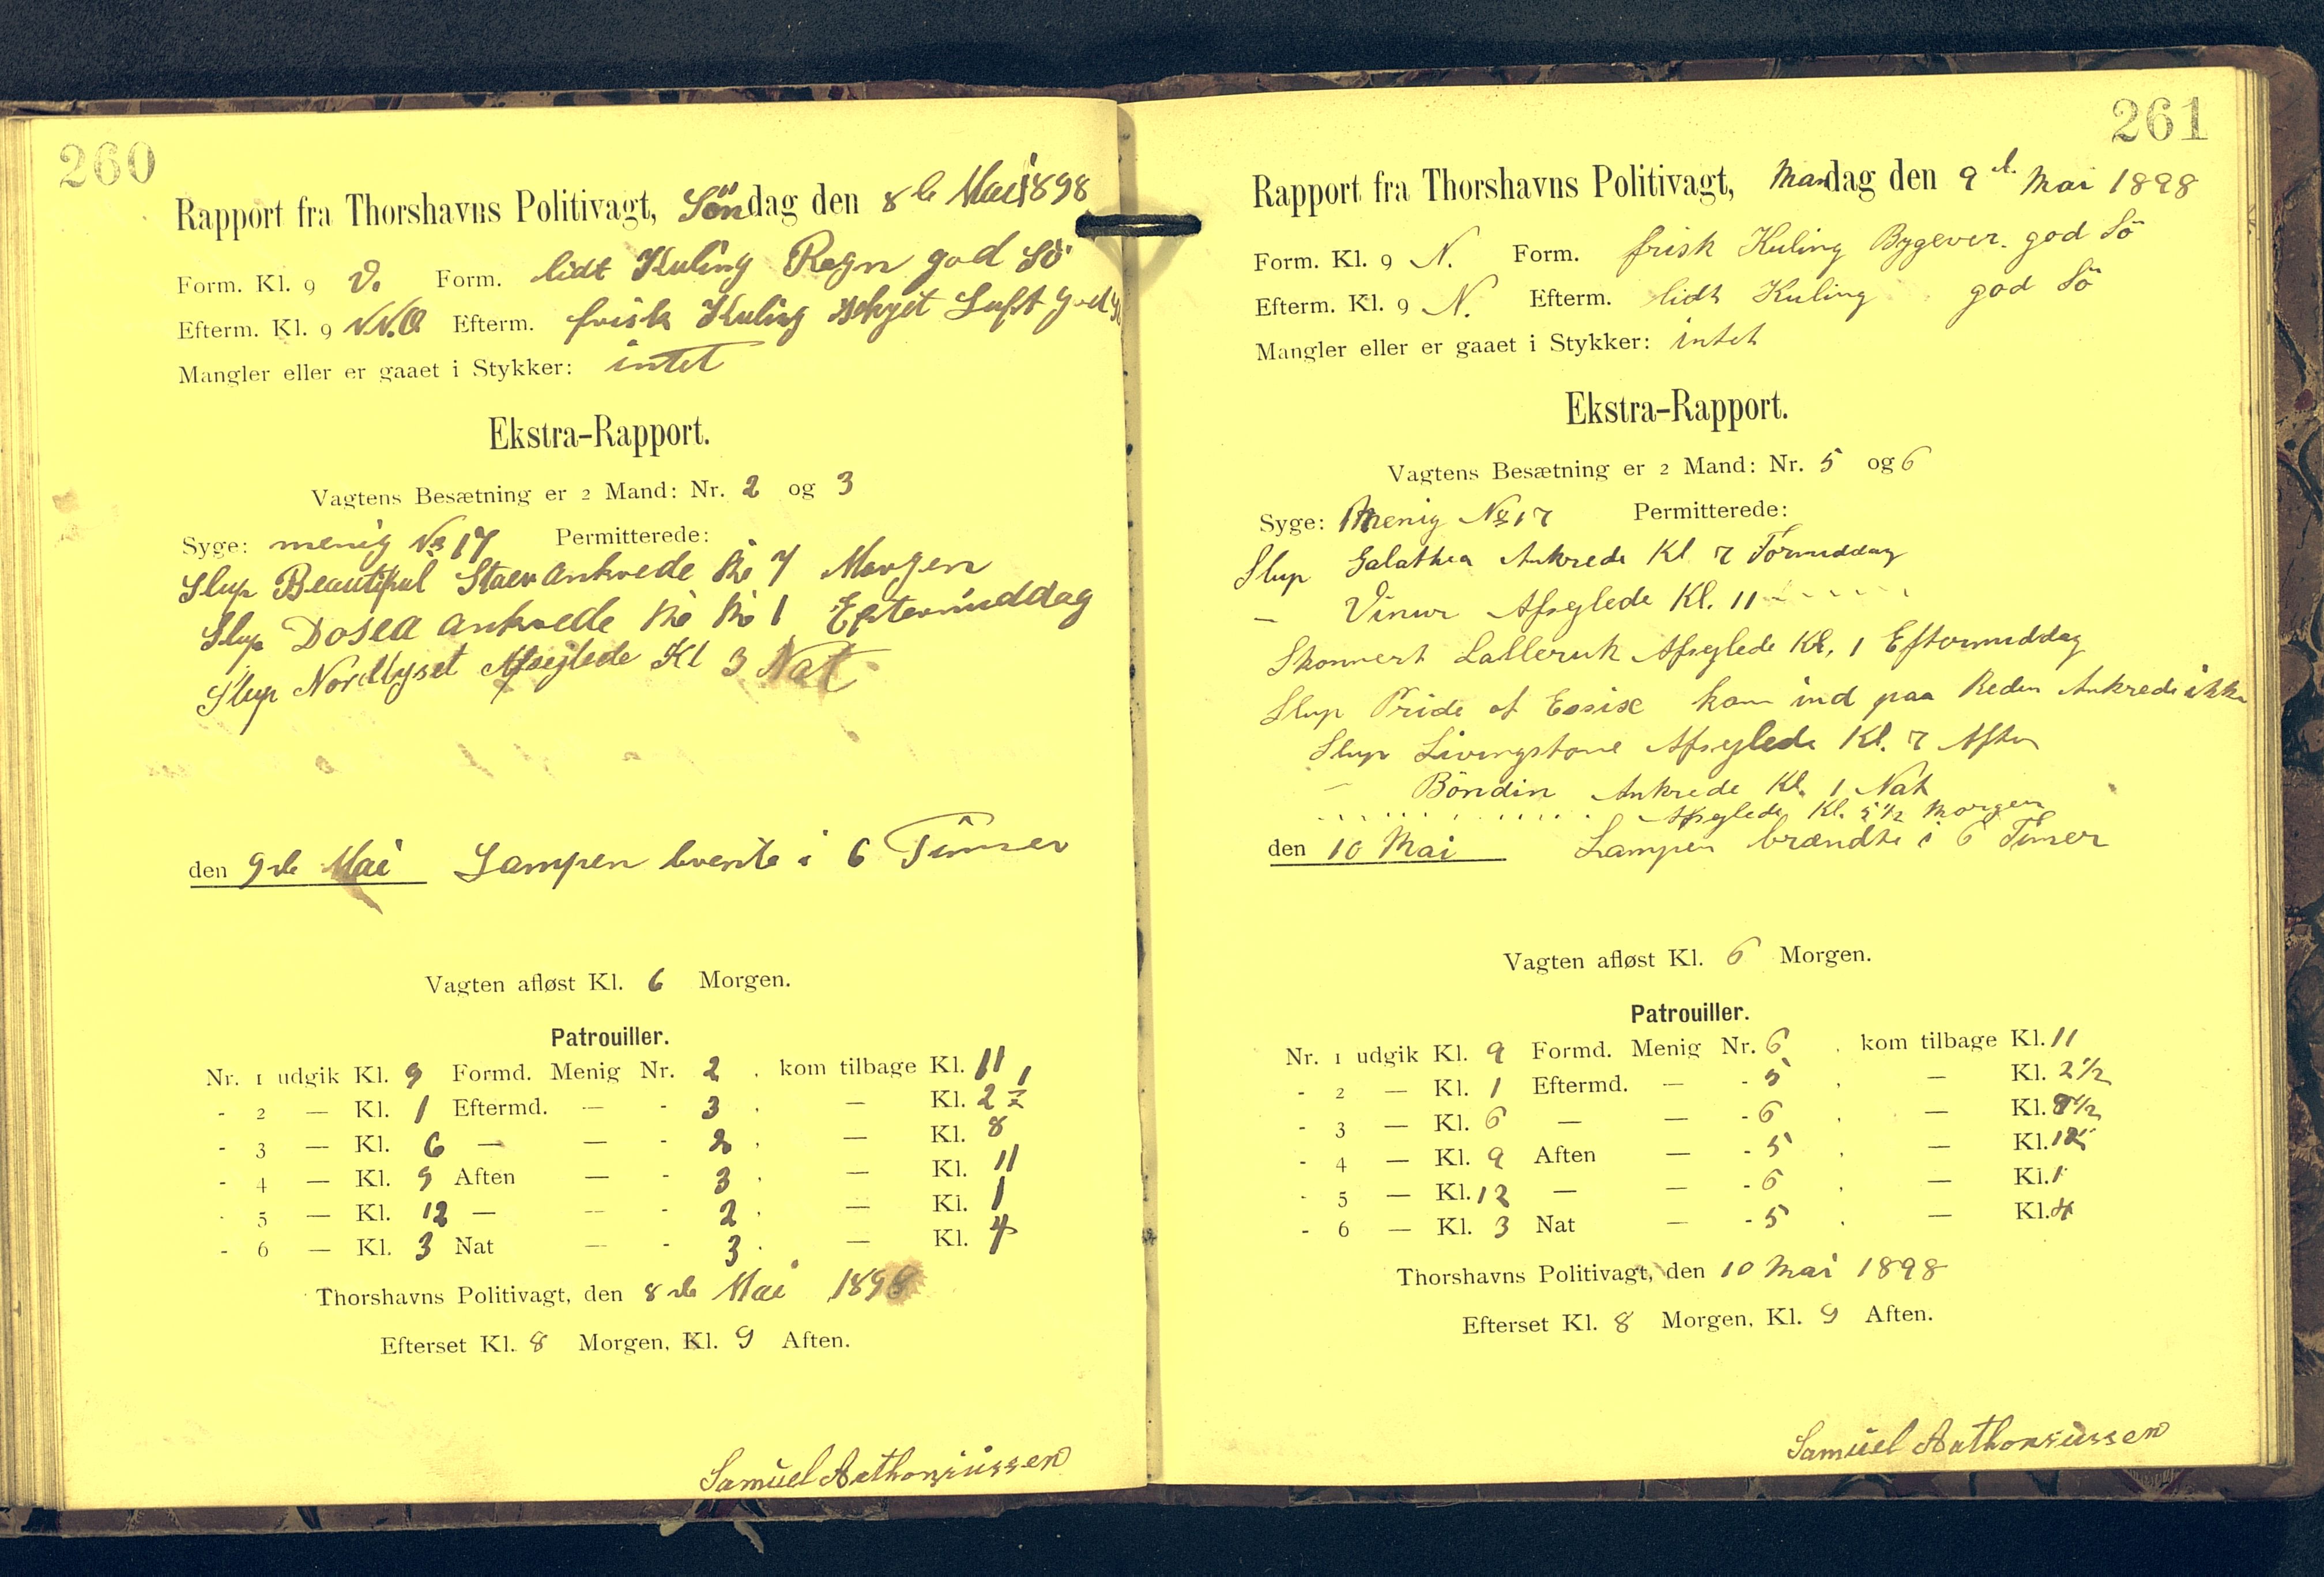 260
Rapport fra Thorshavns Politivagt, Söndag den 8de Mai 1898
Form. Kl. 9 V. Form. lidt Kuling Regn god Sö
Efterm. Kl. 9 N.N.O Efterm. frisk Kuling Skyet Luft god
Mangler eller er gaaet i Stykker: intet
Ekstra-Rapport.
Vagtens Besætning er 2 Mand: Nr. 2 og 3
Syge: menig No 17 Permitterede:
Slup Beautiful Staer ankrede Kl 7 Morgen
Slup Dosea ankrede Kl Kl 1 Eftermiddag
Slup Nordlyset Afseglede Kl 3 Nat
den 9de Mai Lampen brente i 6 Timer
Vagten afløst Kl. 6 Morgen.
Patrouiller.
Nr. 1 udgik Kl. 9 Formd. Menig Nr. 2 . kom tilbage Kl. 11
- 2 — Kl. 1 Eftermd. — - 3 . — Kl. 2 1/2
- 3 — Kl. 6 — — - 2 . — Kl. 8
- 4 — Kl. 9 Aften — - 3 . — Kl. 11
- 5 — Kl. 12 — — - 2 . — Kl. 1
- 6 — Kl. 3 Nat — - 3 . — Kl. 4
Thorshavns Politivagt, den 8de Mai 1898
Efterset Kl. 8 Morgen, Kl. 9 Aften.
Samuel Anthoniussen
261
Rapport fra Thorshavns Politivagt, Mandag den 9d. Mai 1898
Form. Kl. 9 N. Form. frisk Kuling Bygever. god Sö
Efterm. Kl. 9 N. Efterm. lidt Kuling god Sö
Mangler eller er gaaet i Stykker: intet
Ekstra-Rapport.
Vagtens Besætning er 2 Mand: Nr. 5 og 6
Syge: Menig No 17 Permitterede:
Slup Galathea Ankrede Kl 7 Formiddag
— Vinur Afseglede Kl. 11 - - - - -
Skonnert Lalleruk Afseglede Kl. 1 Eftermiddag
Slup Pride of Essise kom ind paa Reden Ankrede ikke
Slup Livingstone Afseglede Kl. 7 Aften
— Böndin Ankrede Kl. 1 Nat
. . . . . . . . . . . Afseglede Kl. 5 1/2 Morgen
den 10 Mai Lampen brændte i 6 Timer
Vagten afløst Kl. 6 Morgen.
Patrouiller.
Nr. 1 udgik Kl. 9 Formd. Menig Nr. 6 . kom tilbage Kl. 11
- 2 — Kl. 1 Eftermd. — - 5 . — Kl. 2 1/2
- 3 — Kl. 6 — — - 6 . — Kl. 8 1/2
- 4 — Kl. 9 Aften — - 5 . — Kl.
- 5 — Kl. 12 — — - 6 . — Kl. 1
- 6 — Kl. 3 Nat — - 5 . — Kl. 4
Thorshavns Politivagt, den 10 Mai 1898
Efterset Kl. 8 Morgen, Kl. 9 Aften.
Samuel Anthoniussen